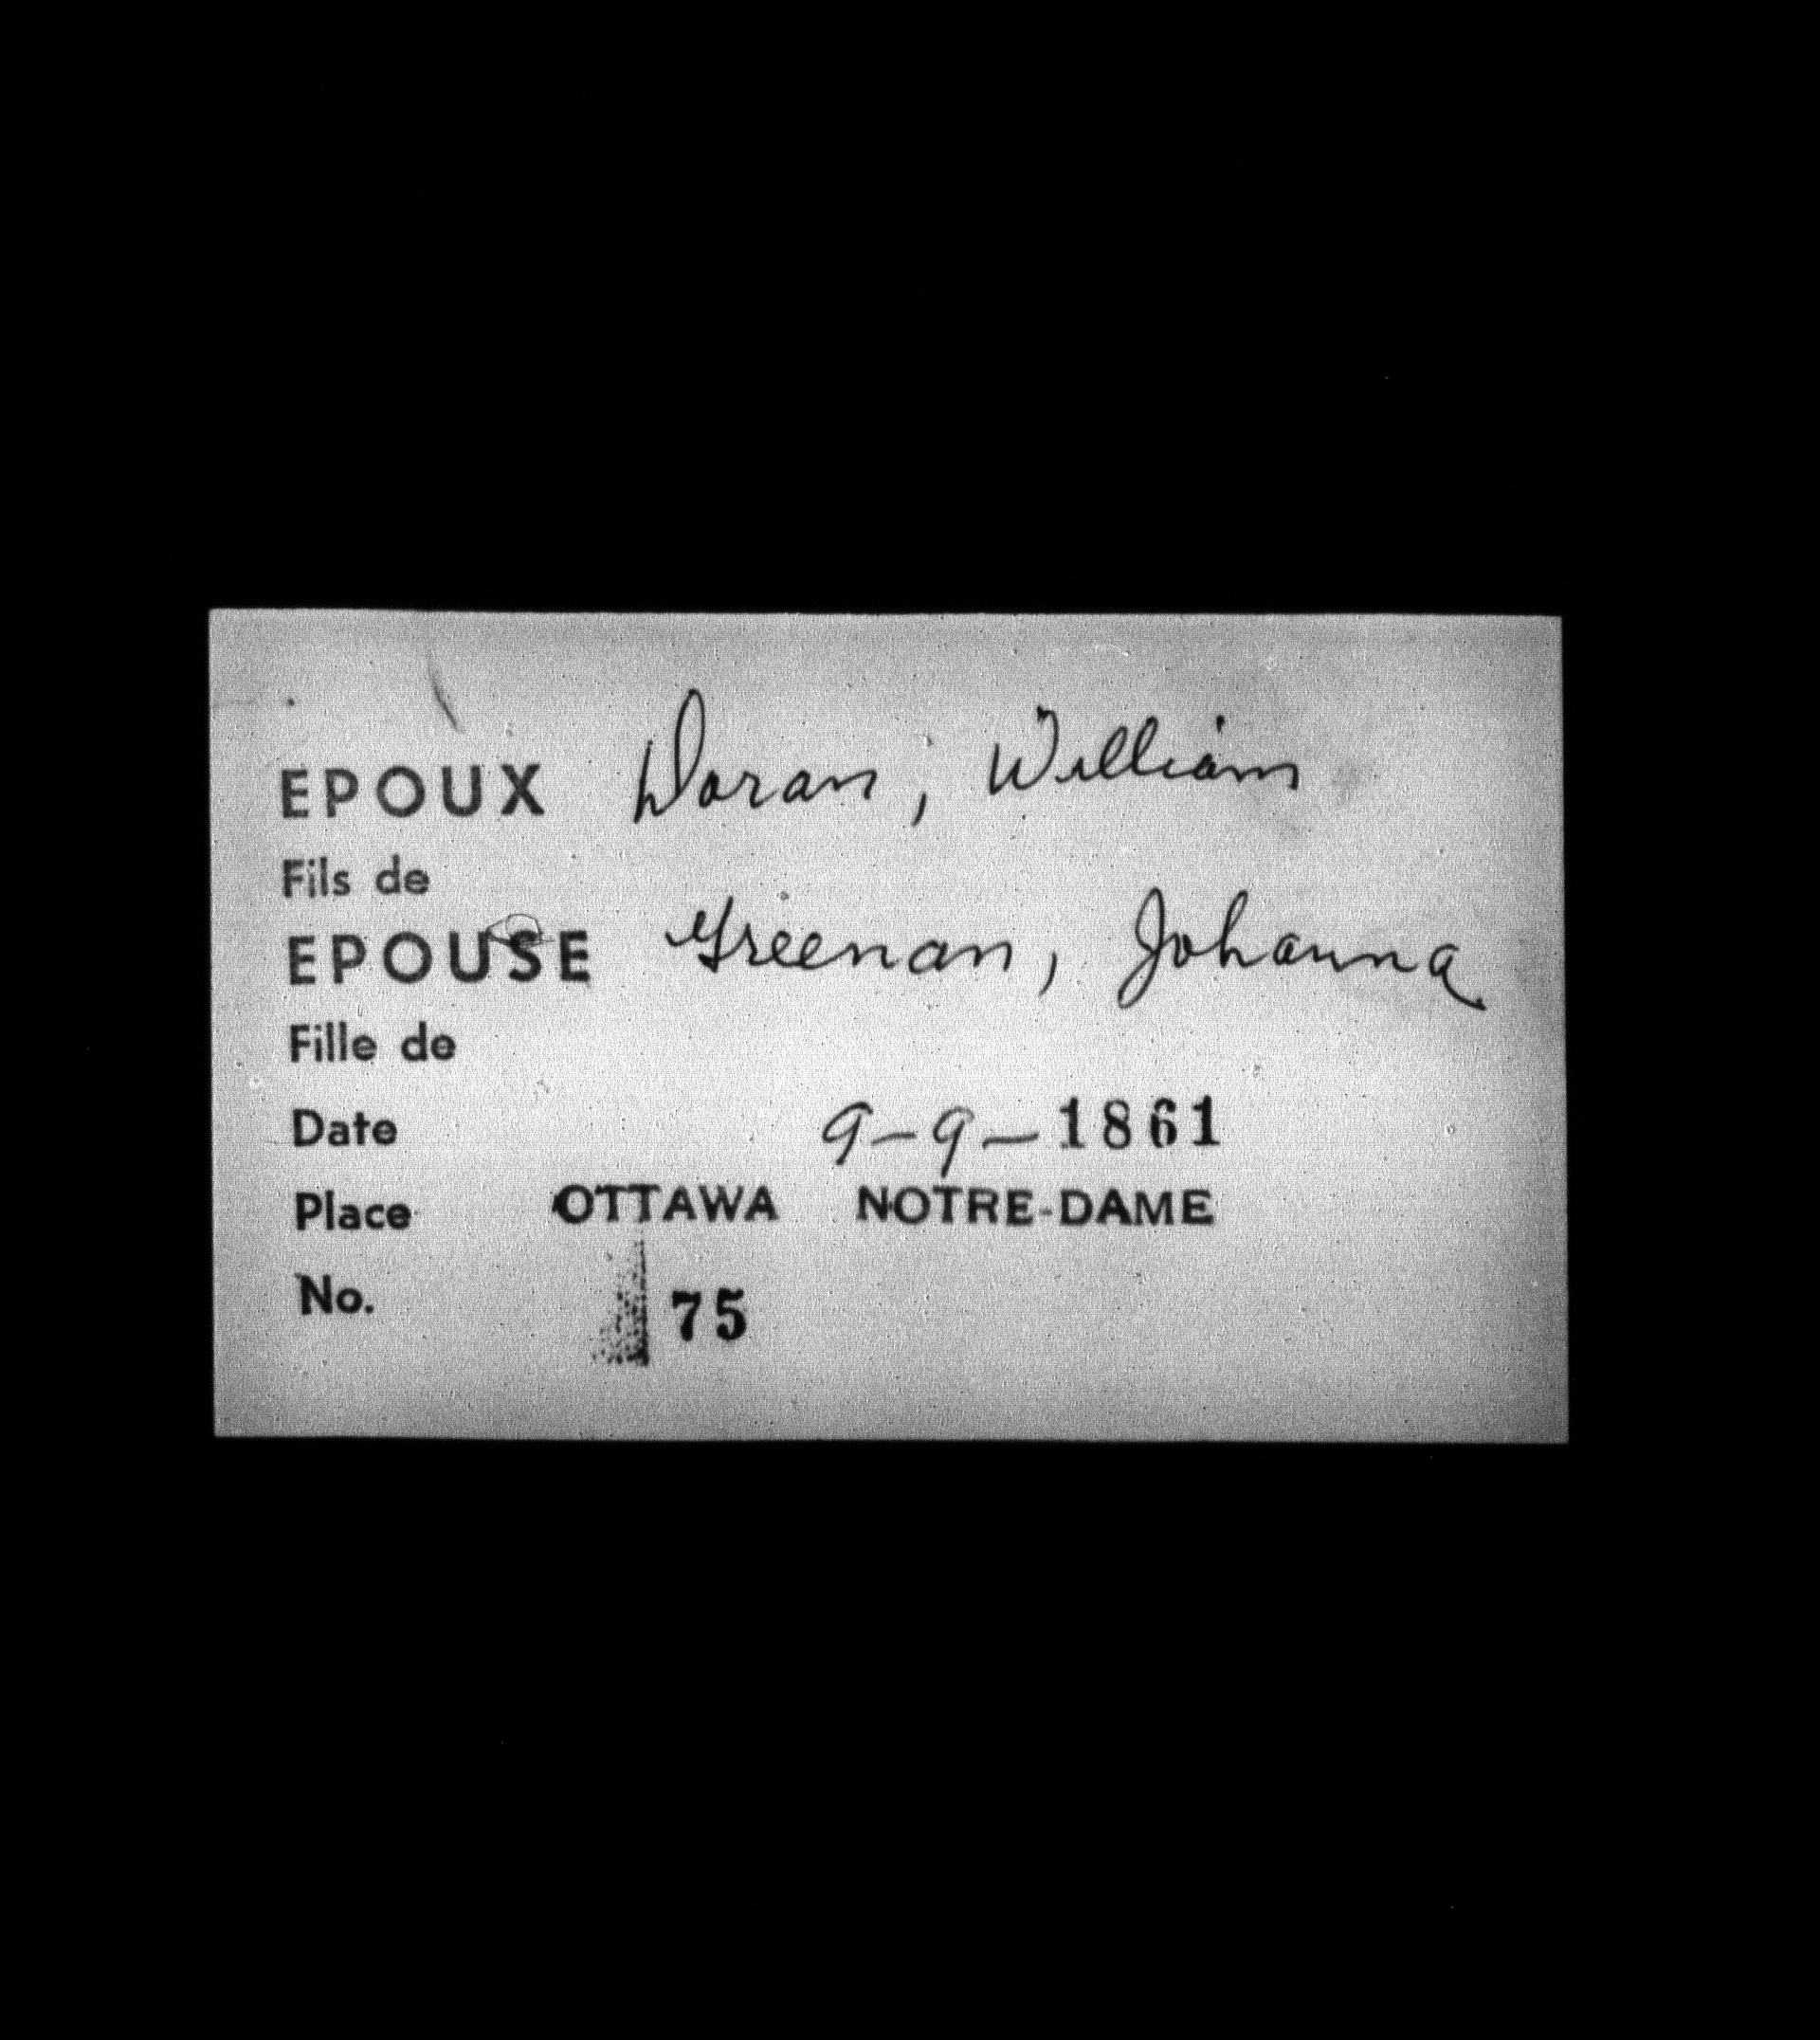 EPOUX Doran, William
Fils de
EPOUSE Greenan, Johanna
Fille de
Date 9-9-1861
Place OTTAWA NOTRE-DAME
No. 75